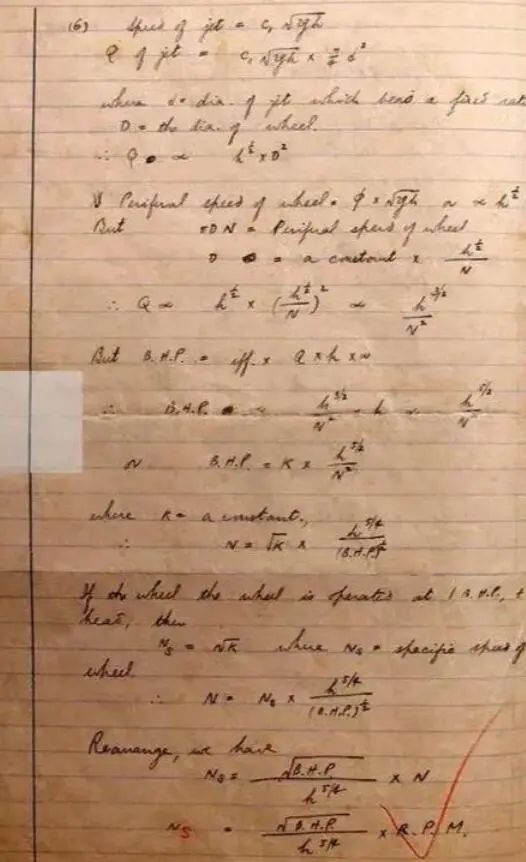 (6) Speed of jet = c, √2gh
Q of jet = c, √2gh × π/4 d²
where d = dia. of jet which bears a fixed
D = the dia. of wheel.
∴ Q ∝ h^½ × D²
Periferal speed of wheel = φ × √2gh or ∝ h^½
But πDN = Periferal speed of wheel
D = a constant × h^½/N
∴ Q ∝ h^½ × (h^½/N)² ∝ h^3/2/N²
But B.H.P. = eff. × Q × h × w
∴ B.H.P. ∝ h^3/2/N² × h ∝ h^5/2/N²
or B.H.P. = K × h^5/2/N²
where K = a constant.,
∴ N = √K × h^5/4/(B.H.P.)^½
If the wheel the wheel is operated at 1 B.H.P., +
head, then
Ns = √K where Ns = specific speed of
wheel.
∴ N = Ns × h^5/4/(B.H.P.)^½
Rearrange, we have
Ns = √B.H.P./h^5/4 × N
Ns = √B.H.P./h^5/4 × R.P.M.